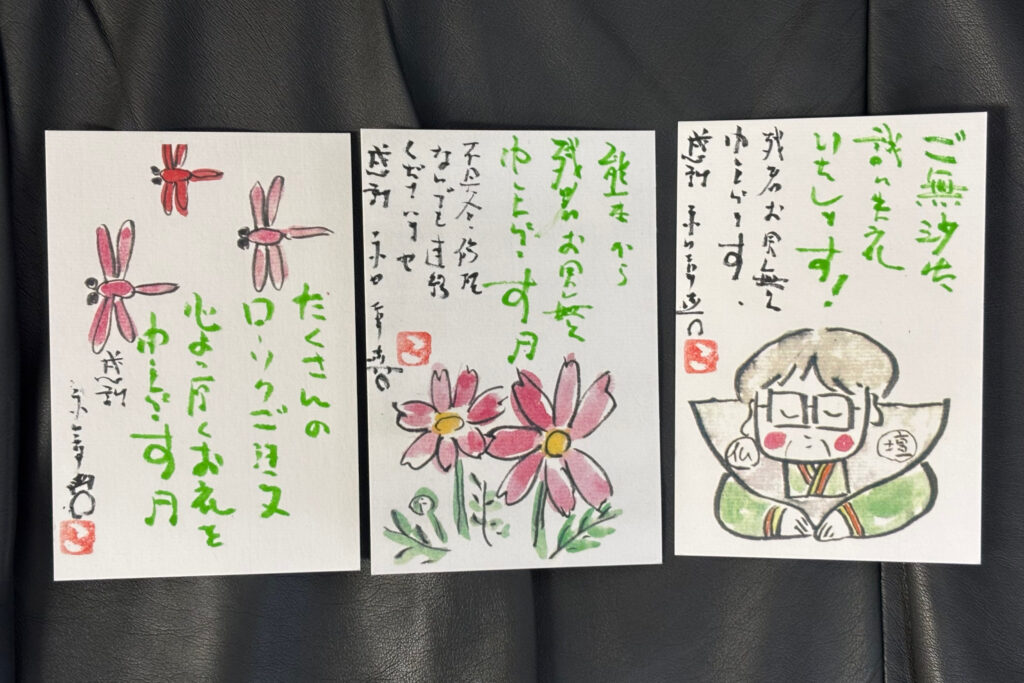 ご無沙汰
誠に失礼
いたします!
残暑お見舞
申し上げます、
感謝
仏
壇
熊本から
残暑お見舞
申し上げます
不具合、修理
なんでも連絡
くださいませ
感謝
たくさんの
ローソクご注文
心より厚くお礼を
申し上げます
感謝